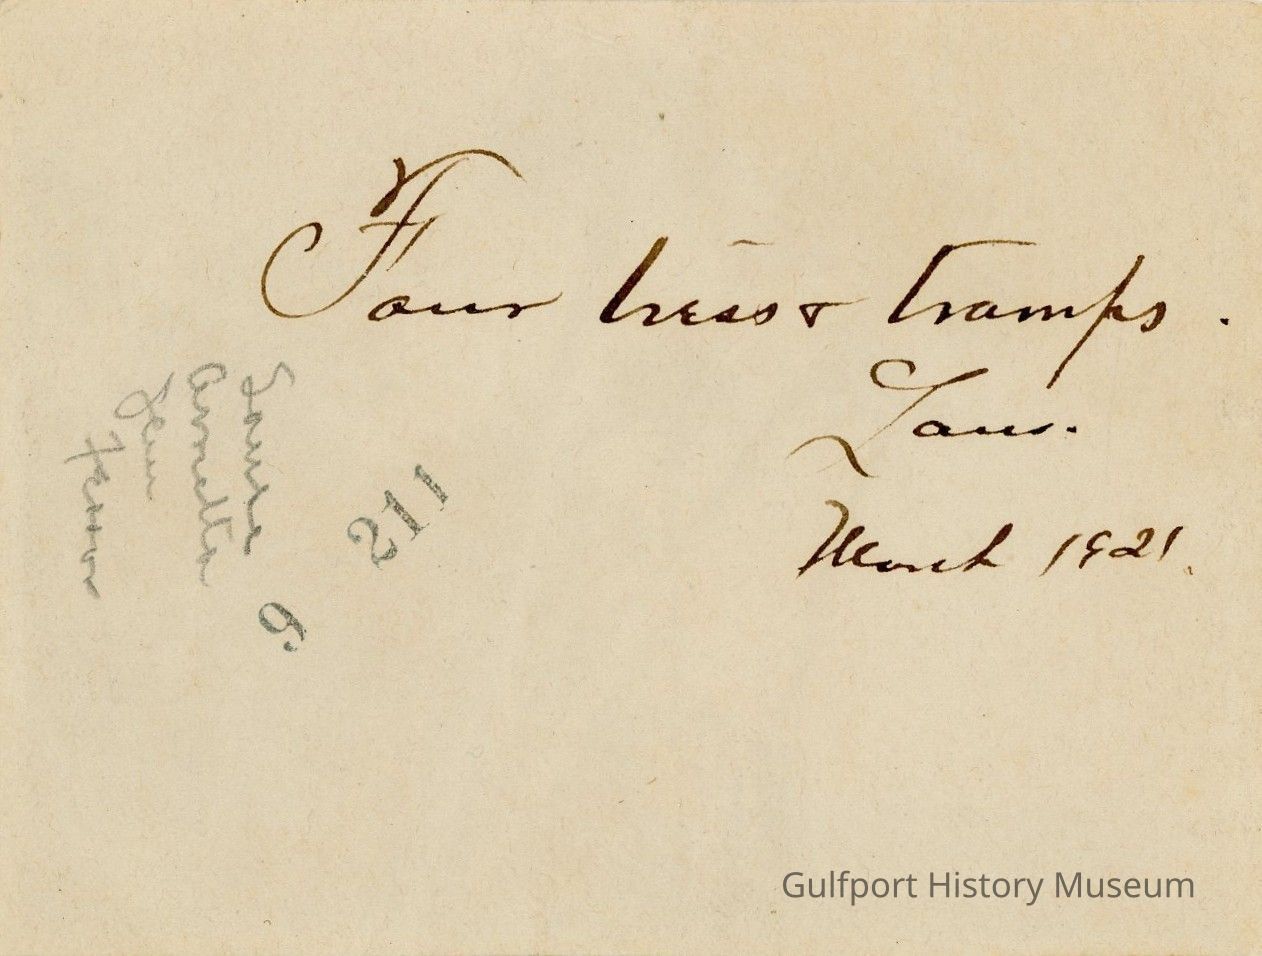 Four tress & tramps.
Laur.
March 1921.
Laura
Annetta
Jean
Fennor
211
9
Gulfport History Museum